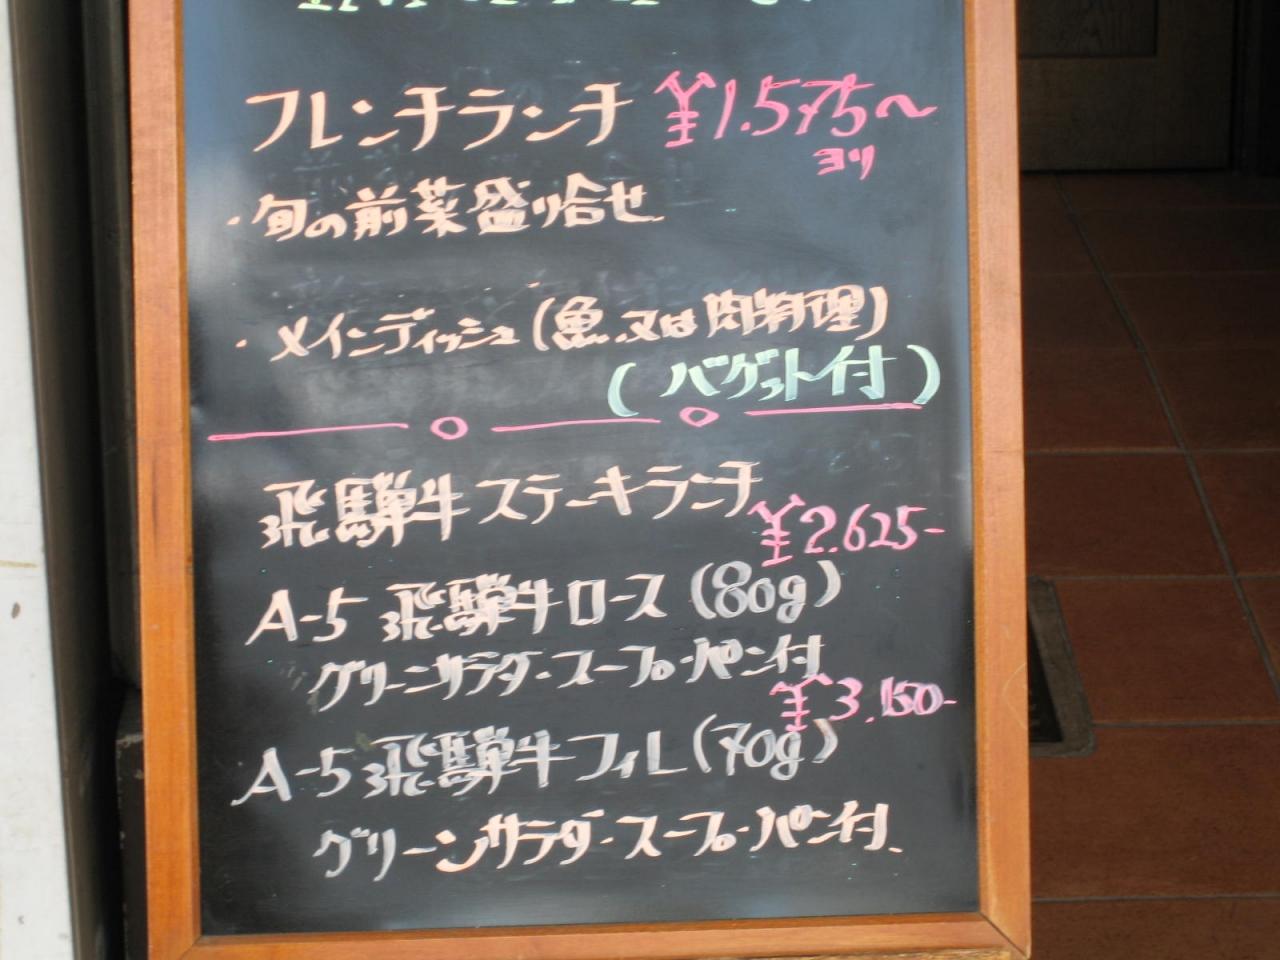 フレンチランチ ¥1.575〜
ヨリ
・旬の前菜盛り合せ
・メインディッシュ(魚.又は肉料理)
(バゲット付)
飛騨牛ステーキランチ
¥2.625-
A-5 飛騨牛ロース(80g)
グリーンサラダ・スープ・パン付
¥3.150-
A-5 飛騨牛フィレ(70g)
グリーンサラダ・スープ・パン付、